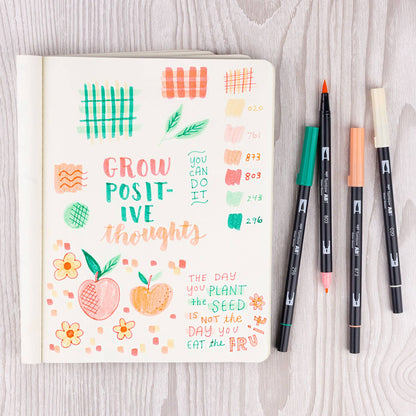 GROW
POSIT-
IVE
thoughts
YOU
CAN
DO
IT
020
761
873
803
243
296
THE DAY
YOU PLANT
the SEED
IS NOT the
DAY YOU
EAT the FRUIT